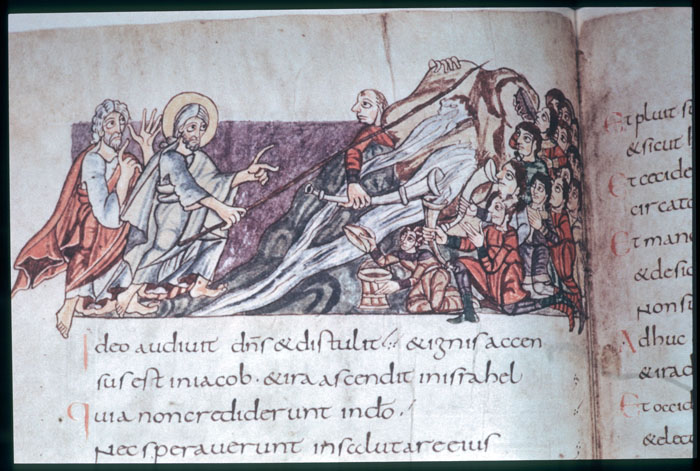 Ideo audiuit dn̄s & distulit & ignis accen
sus est in iacob · & ira ascendit in israhel
Quia non crediderunt in dō ·
Nec sperauerunt in salutare eius
Et pluit s
& sicut h
Et cecide
circa
Et man
& desi
Non s
Adhuc
& ira
Et occid
& elec